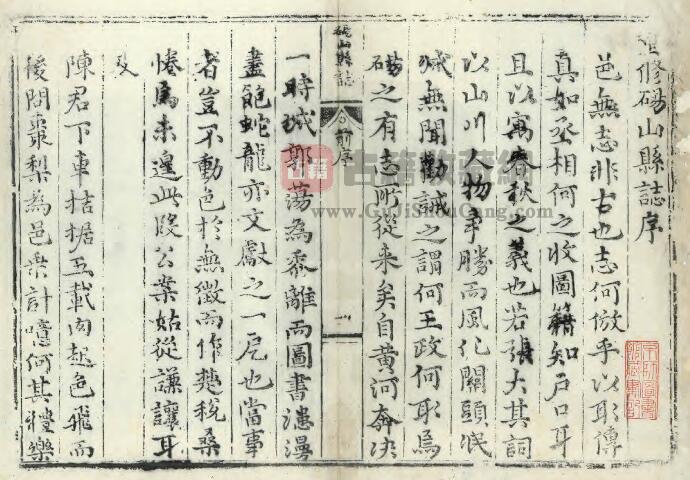 重修碭山縣誌序
邑無志非古也志何倣乎以彰傳
真如丞相何之收圖籍知戶口耳
且以寓春秋之義也若張大其詞
以山川人物爭勝而風化關頭泯
滅無聞勸誡之謂何王政何取焉
碭之有志所從来矣自黃河奔决
碭山縣誌
前序
一
一時城郭蕩為黍離而圖書漶漫
盡飽蛇龍亦文獻之一厄也當事
者豈不動色於無徵而作楚稅桑
惓焉未遑此段公案姑從謙讓耳
及
陳君下車拮据五載肉起色飛而
後問棗梨為邑乘計噫何其禮樂
古籍
www.GuJiShuCang.com